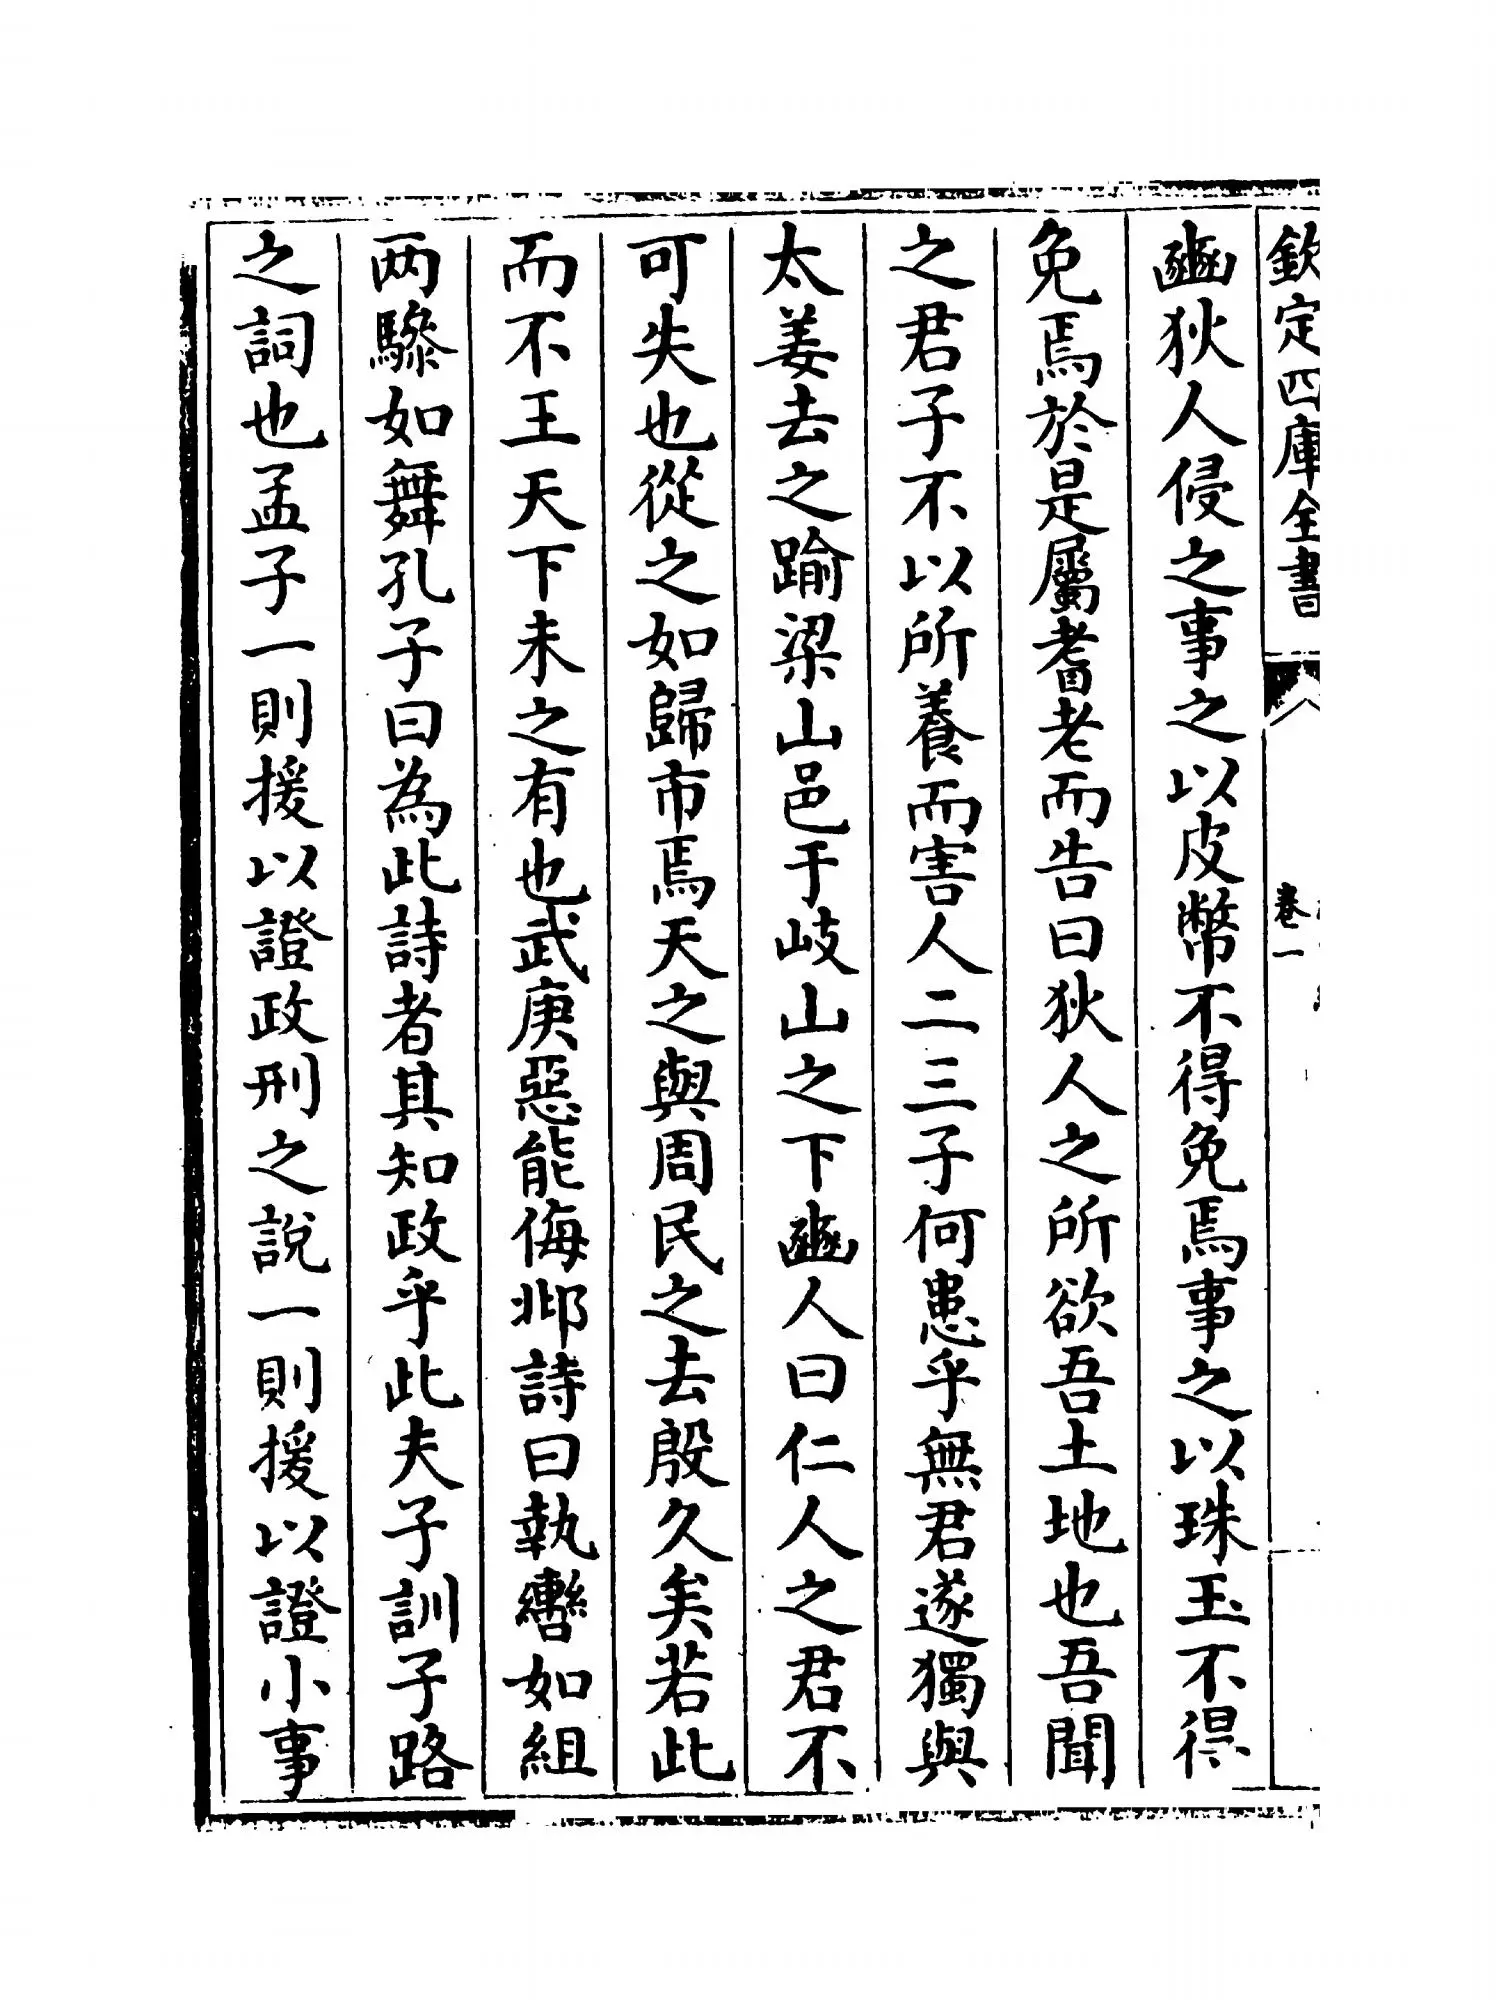 欽定四庫全書
卷一
豳狄人侵之事之以皮幣不得免焉事之以珠玉不得
免焉於是屬耆老而告曰狄人之所欲吾土地也吾聞
之君子不以所養而害人二三子何患乎無君遂獨與
太姜去之踰梁山邑于岐山之下豳人曰仁人之君不
可失也從之如歸市焉天之與周民之去殷久矣若此
而不王天下未之有也武庚惡能侮邶詩曰執轡如組
两驂如舞孔子曰為此詩者其知政乎此夫子訓子路
之詞也孟子一則援以證政刑之說一則援以證小事